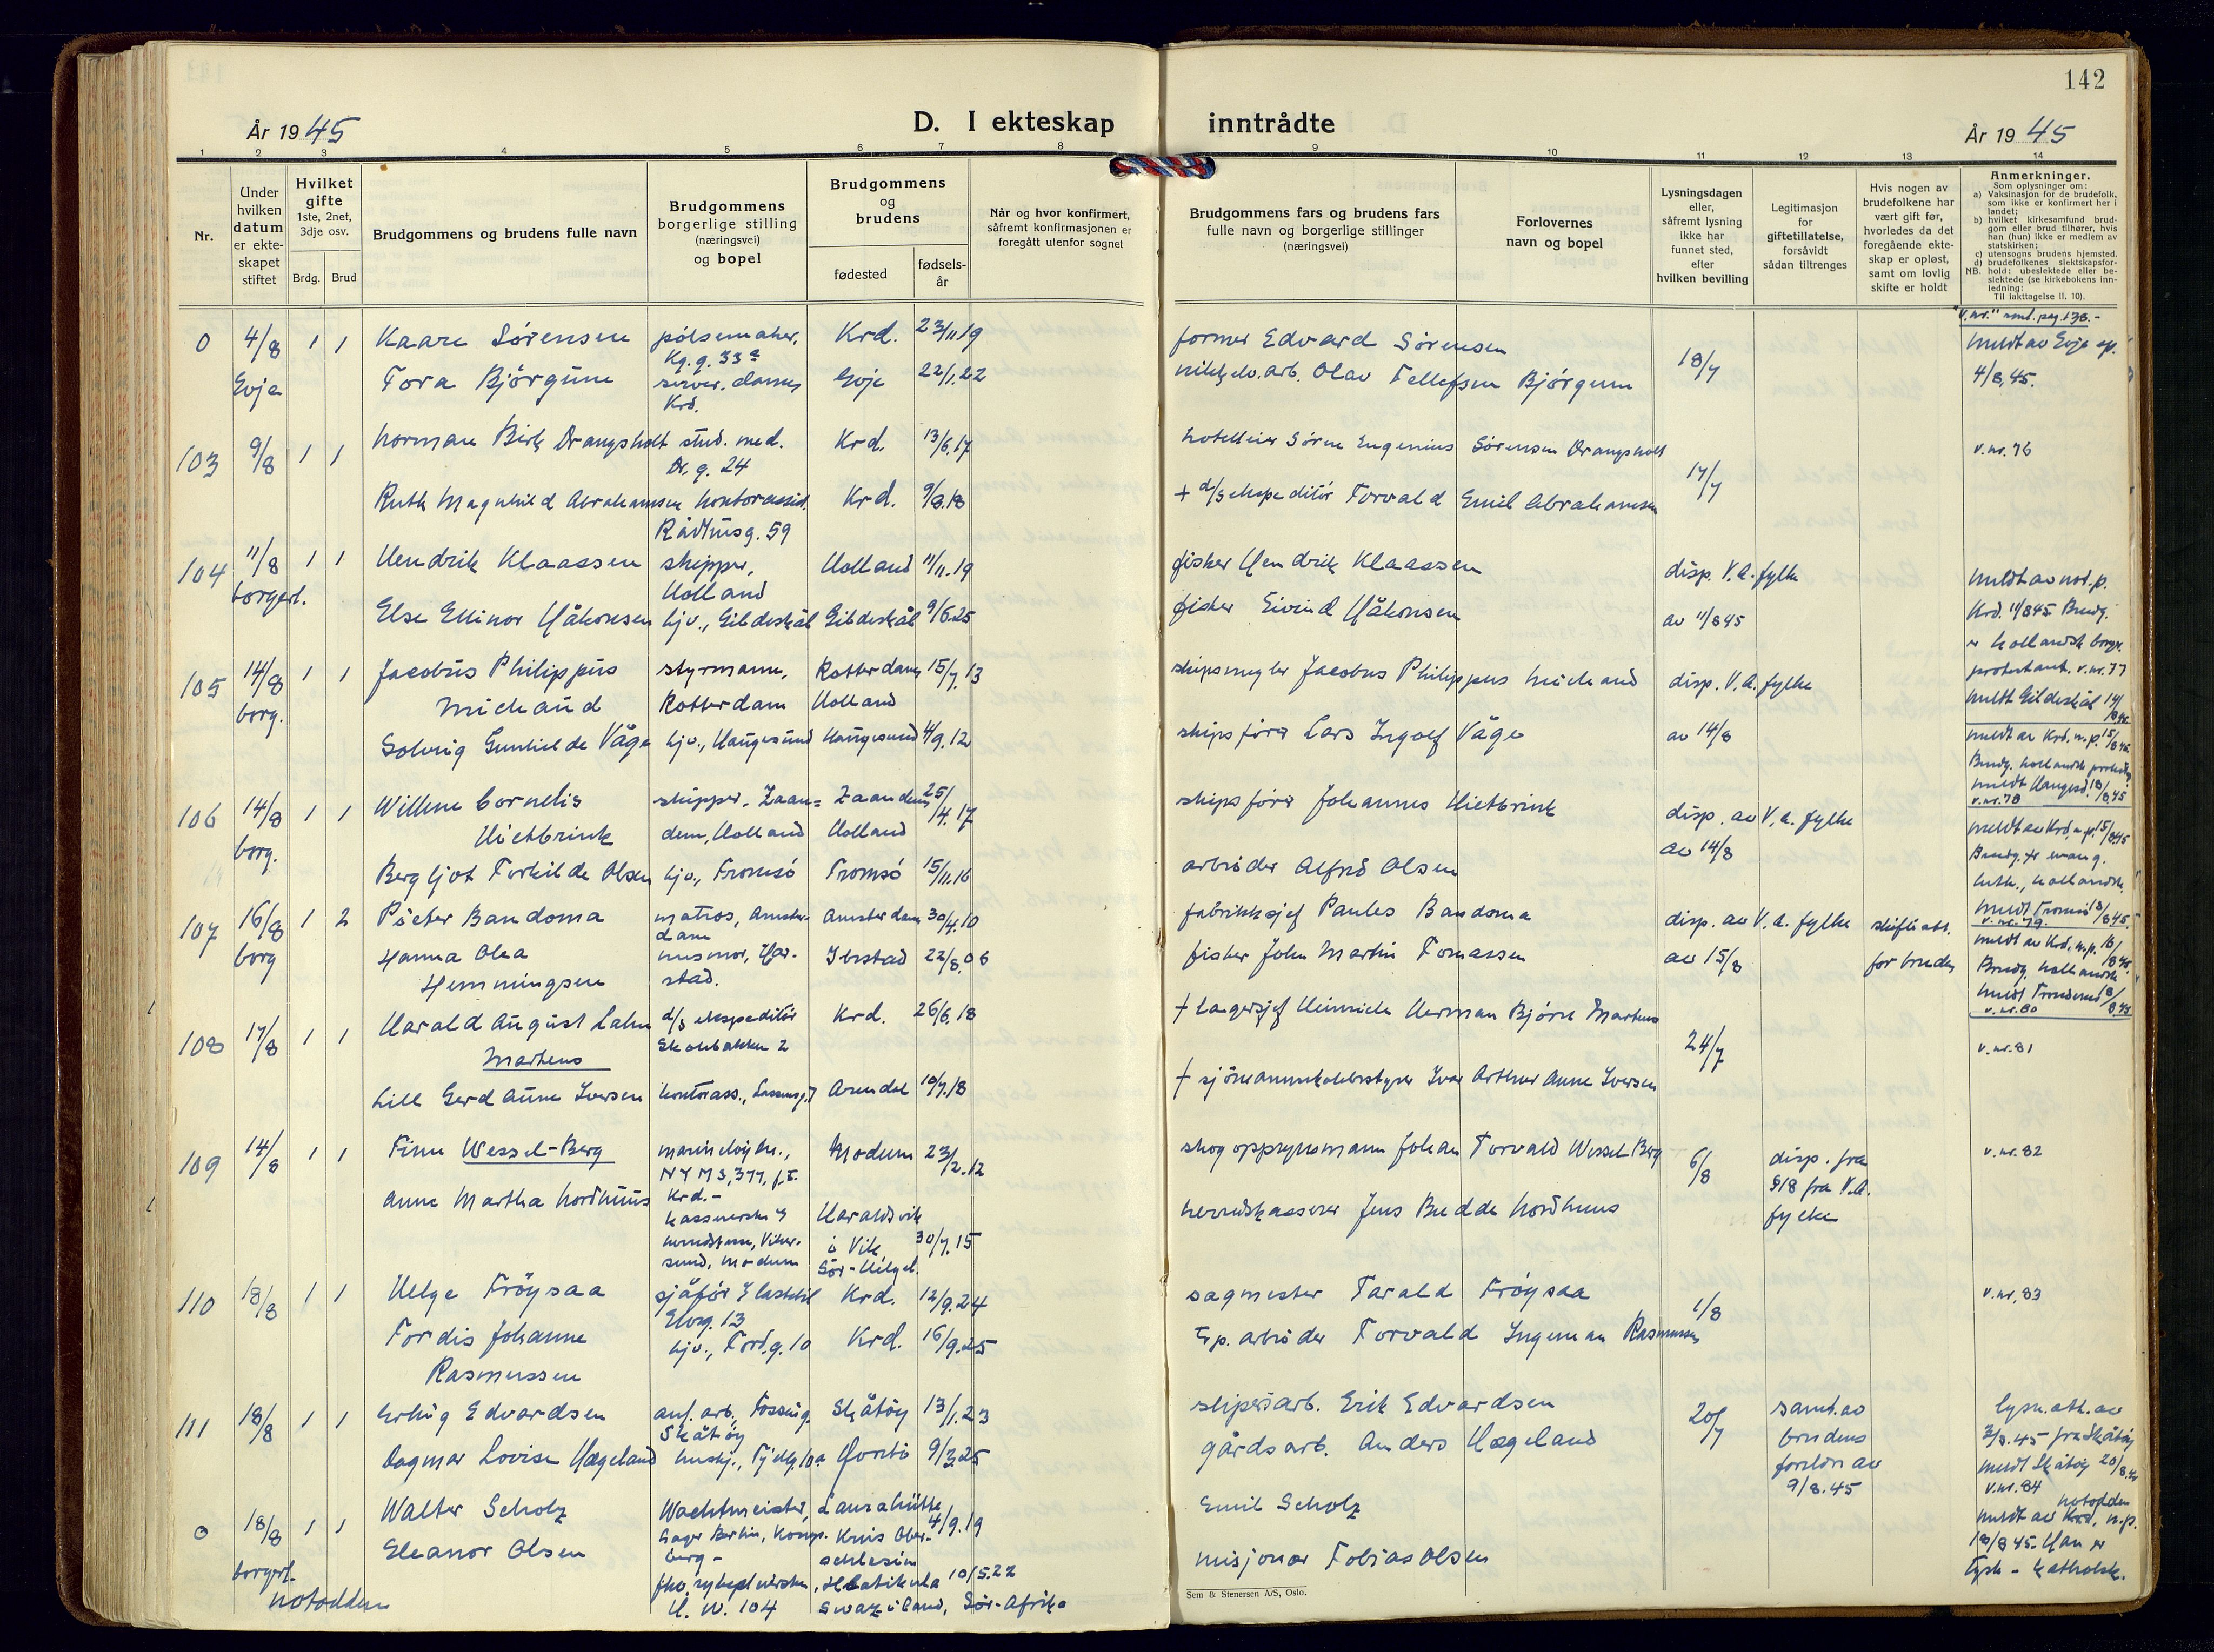 142
År 1945
D. I ekteskap inntrådte
År 1945
1 2 3 4 5 6 7 8 9 10 11 12 13 14
Nr.
Under hvilken datum er ekte-skapet stiftet
Hvilket gifte
1ste, 2net, 3dje osv.
Brdg. Brud
Brudgommens og brudens fulle navn
Brudgommens borgerlige stilling (næringsvei) og bopel
Brudgommens og brudens
fødested
fødsels-år
Når og hvor konfirmert, såfremt konfirmasjonen er foregått utenfor sognet
Brudgommens fars og brudens fars fulle navn og borgerlige stillinger (næringsvei)
Forlovernes navn og bopel
Lysningsdagen eller, såfremt lysning ikke har funnet sted, efter hvilken bevilling
Legitimasjon for giftetillatelse, forsåvidt sådan tiltrenges
Hvis nogen av brudefolkene har vært gift før, hvorledes da det foregående ekte-skap er opløst, samt om lovlig skifte er holdt
Anmerkninger.
Som oplysninger om:
a) Vaksinasjon for de brudefolk, som ikke er konfirmert her i landet;
b) hvilket kirkesamfund brud-gom eller brud tilhører, hvis han (hun) ikke er medlem av statskirken;
c) utensogns brudens hjemsted.
d) brudefolkenes slektskapsfor-hold: ubeslektede eller be-slektede (se kirkebokens inn-ledning:
NB. Til iakttagelse II. 10).
"v.nr." pag. 138.-
0 4/8 1 1 Kaare Sørensen pølsemaker, Krd. 23/11.19 former Edvard Sørensen 18/7 meldt av Evje sp.
Kg. g. 33a
Evje Tora Bjørgum server. dame, Evje 22/1.22 nikkelv. arb. Olav Tellefsen Bjørgum 4/8.45.
Krd.
103 9/8 1 1 Norman Birk Drangsholt stud. med. Krd. 13/6.17 hotelleier Søren Eugenius Sørensen Drangsholt 17/7 v.nr. 76
Dr. g. 24
Ruth Magnhild Abrahamsen kontorassist. Krd. 9/8.18 + d/s ekspeditør Torvald Emil Abrahamsen
Rådhusg. 59
104 11/8 1 1 Hendrik Klaassen skipper, Holland 11/11.19 fisker Hendrik Klaassen disp. V.A. fylke meldt av not.p.
borgerl. Holland
Else Ellinor Håkonsen hjv., Gildeskål Gildeskål 9/6.25 fisker Eivind Håkonsen av 11/8 45 Krd. 11/8 45. Brudg.
er hollandsk borger
protestant. v.nr. 77
meldt Gildeskål 14/8.45
105 14/8 1 1 Jacobus Philippus styrmann, Rotterdam 15/7.13 skipsmegler Jacobus Philippus Michaud disp. V.A. fylke
borg. Michaud Rotterdam Holland
Solveig Gunhilde Våge hjv., Haugesund Haugesund 4/9.12 skipsfører Lars Ingolf Våge av 14/8 meldt av Krd. n.p. 15/8 45.
Brudg. hollandsk
meldt Haugesd. 18/8.45
v.nr. 78
106 14/8 1 1 Willem Cornelis skipper, Zaan= Zaandam 25/4.17 skipsfører Johannes Hietbrink disp. av V.A. fylke
borg. Hietbrink dam, Holland Holland av 14/8 meldt av Krd. n.p. 15/8 45
Bergljot Torhilde Olsen hjv., Tromsø Tromsø 15/11.16 arbeider Alfred Olsen Brudg. er evang.
luth., hollandsk.
meldt Tromsø 18/8 45
v.nr. 79.
107 16/8 1 2 Pieter Bandoma matros, Amster- Amsterdam 30/4.10 fabrikksjef Paules Bandoma disp. av V.A. fylke skifteatt.
borg dam
Hanna Olea husmor, Har- Ibestad 22/8.06 fisker John Martin Tomassen av 15/8 for bruden meldt av Krd. n.p. 16/8 45.
Hemmingsen stad. Brudg. hollandsk
meldt 18/8.45
v.nr. 80
108 17/8 1 1 Harald August Lahn d/s ekspeditør Krd. 26/6.18 + lagersjef Heinrich Herman Bjørn Martens 24/7 v.nr. 81
Martens Skolebakken 2
Lill Gerd Aune Iversen kontorass., Arendal 10/7.18 + sjømannskolebestyrer Ivar Arthur Aune Iversen
109 14/8 1 1 Finn Wessel-Berg marineløytn., Modum 23/2.12 skogoppsynsmann Johan Torvald Wessel-Berg 6/8 disp. fra v.nr. 82
NYMS, 377, f.t. §18 fra V.A.
Krd.- fylke
Anne Martha Nordhuus kassererske i Haraldsvik herredskasserer Jens Budde Nordhuus
herredskasse, Viker- i Vik, 30/7.15
sund, Modum Sør-Helgel.
110 18/8 1 1 Helge Frøysaa sjåfør i lastebil Krd. 12/9.24 sagmester Tarald Frøysaa 1/8 v.nr. 83
Elvg. 13
Tordis Johanne hjv., Tord.g. 10 Krd. 16/9.25 arbeider Torvald Ingeman Rasmussen
Rasmussen
111 18/8 1 1 Erling Edvardsen anl. arb., Fossing Skåtøy 13/1.23 sliperiarb. Erik Edvardsen 20/7 samt. av lysn. att. av
Skåtøy brudens 3/8.45 fra Skåtøy
Dagmar Lovise Hægeland hushj., 10a 9/3.25 gårdsarb. Anders Hægeland foreldre av meldt Skåtøy 20/8.45
9/8.45 v.nr. 84
0 18/8 1 1 Walter Scholz Wachtmeister, Laurahütte 4/9.19 Emil Scholz Notodden
Lager Berlin, Kongs- Kreis Ober- meldt av Krd. n.p.
berg- schlesien 18/8 45. Han er
borgerl. Eleanor Olsen frk. sykepleierske, Hlatikula 10/5.22 misjonær Tobias Olsen tysk - katholsk.
Notodden H. W. 104 Swaziland, Sør-Afrika
Sem & Stenersen A/S, Oslo.